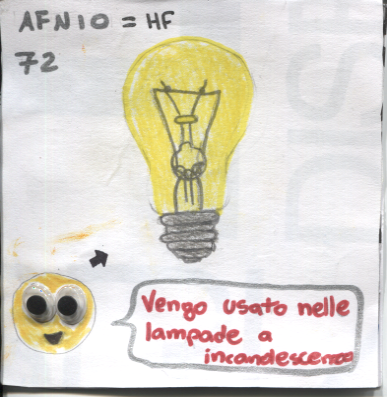 AFNIO = HF
72
Vengo usato nelle
lampade a
incandescenza